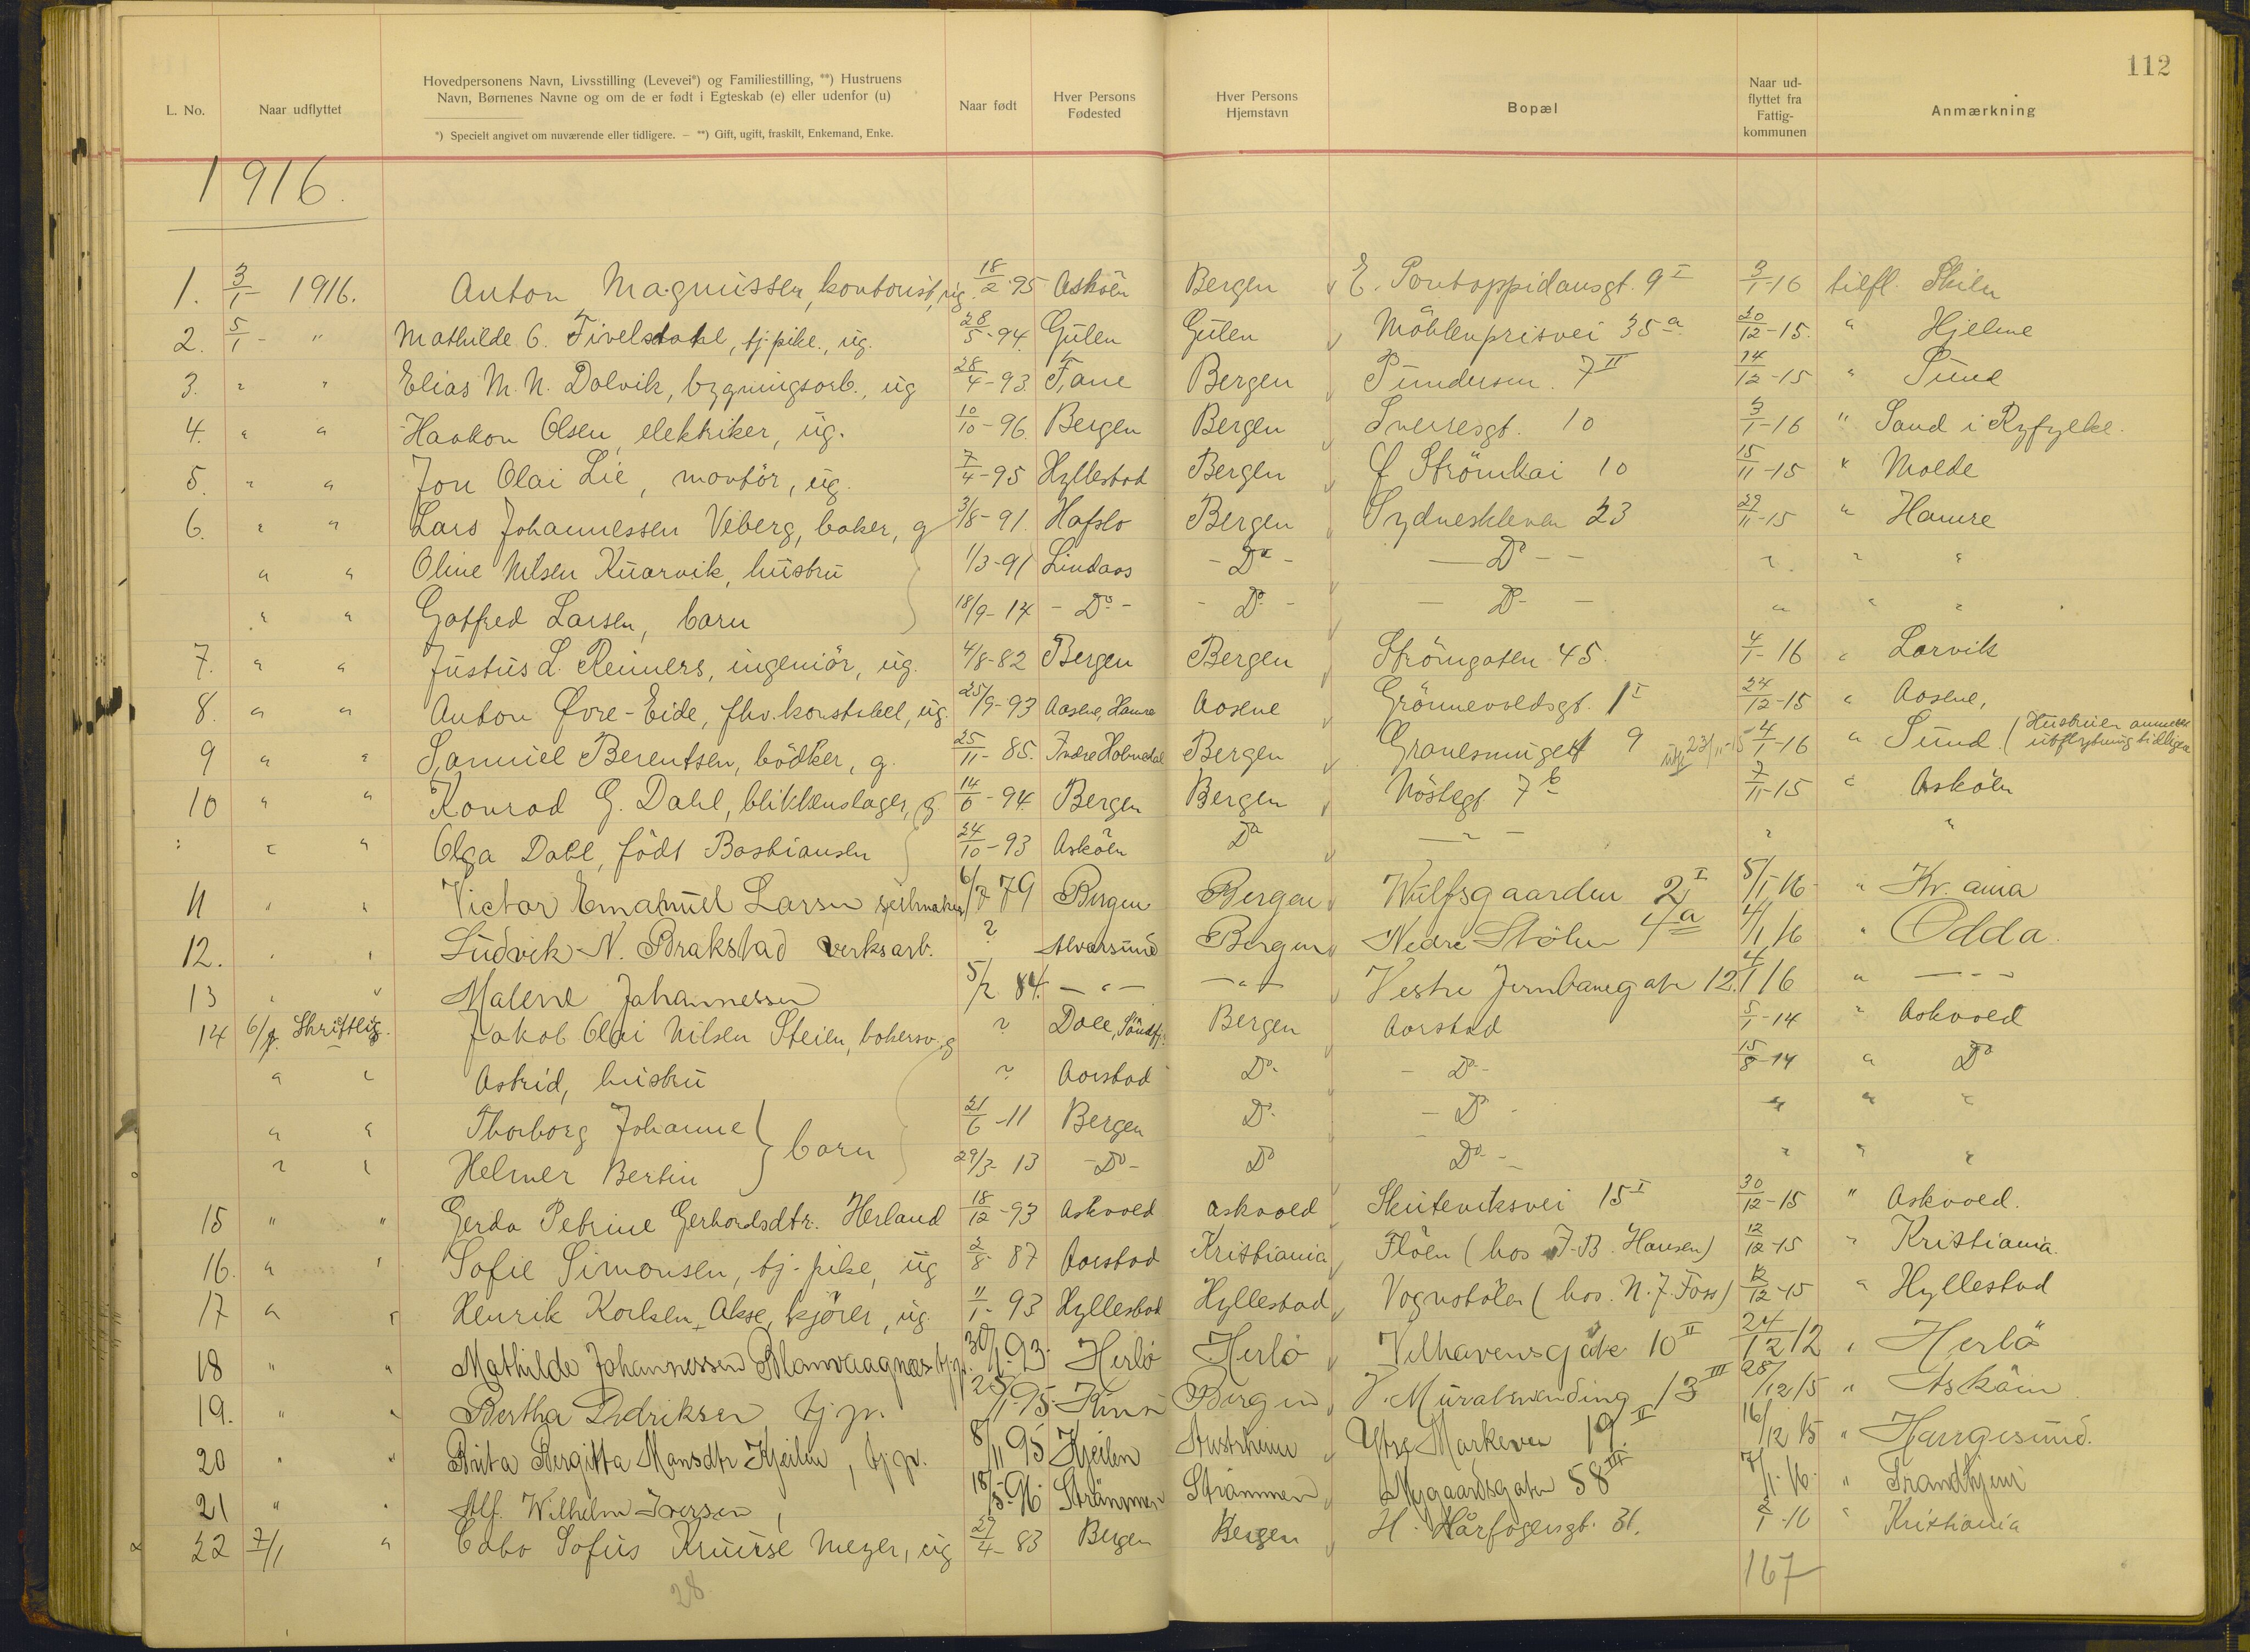 112
L. No. Naar udflyttet Hovedpersonens Navn, Livsstilling (Levevei*) og Familiestilling, **) Hustruens Navn, Børnenes Navne og om de er født i Egteskab (e) eller udenfor (u) Naar født Hver Persons Fødested Hver Persons Hjemstavn Bopæl Naar ud-flyttet fra Fattig-kommunen Anmærkning
*) Specielt angivet om nuværende eller tidligere. — **) Gift, ugift, fraskilt, Enkemand, Enke.
1916.
1. 3/1 - 1916. Anton Magnussen, kontorist, ug. 18/2 95 Asköen Bergen E. Pontoppidansgt. 9 I 3/1-16 tilfl. Skien
2. 5/1 - " Mathilde C. Tivelsdahl, tj. pike., ug. 28/5-94 Gulen Gulen Möhlenprisvei 35 a 20/12-15. " Hjelme
3. " " Elias M. N. Dalvik, bygningsarb., ug 28/4-93 Fane Bergen Pundersm. 7 II 14/12-15 " Sund
4. " " Haakon Olsen, elektriker, ug. 10/10-96 Bergen Bergen Sverresgt. 10 3/1-16 " Sand i Ryfylke.
5. " " Jon Olai Lie, montör, ug. 7/4-95 Hyllestad Bergen Strömkai 10 15/11-15 " Molde
6. " " Lars Johannessen Veberg, baker, g 3/8-91 Hafslo Bergen Sydneskleven 23 29/11-15 " Hamre
" " Oline Nilsen Kuarvik, hustru 1/3-91 Lindaas - Do - - Do - - " " "
" " Gotfred Larsen, barn 18/9-14 - Do - - Do - - Do - " " "
7. " " Justus L. Reimers, ingeniör, ug. 4/8-82 Bergen Bergen Strömgaten 45. 4/1-16 " Larvik
8. " " Anton Øvre-Eide, fhv. konstabel, ug. 25/9-93 Aasene, Hamre Aasene Grönnevoldsgt. 1 I 24/12-15 " Aasene,
9 " " Samuel Berentsen, bödker, g. 25/11-85. Indre Holmedal Bergen Granesmuget 9 23/11-15 4/1-16 " Sund. (Hustruen anmeldt utflytning tidligere
10 " " Konrad G. Dahl, blikkenslager, g. 14/6-94 Bergen Bergen Nöstegt 7 b 7/11-15 " Asköen
" " Olga Dahl, födt Bastiansen 24/10-93 Asköen Do - " - " "
11 " " Victor Emanuel Larsen seilmaker 6/7 79 Bergen Bergen Wulfsgaarden 2 I 5/1-16 " Kr. ania
12. " " Ludvik N. Brakstad verksarb. ? Alversund Bergen Nedre Stölen 4 a 4/1 16 " Odda.
13 " " Malene Johannessen 5/2 84. - " - - " - Vestre Jernbanegate 12. 4/1 16 " - - -
14 6/1. Skriftlig. Jakob Olai Nilsen Steien, bakersv. g ? Dale, Söndfj. Bergen Aarstad 5/1-14 " Askvoll
" " Astrid, hustru ? Aarstad Do - Do - 15/8-14 " Do
" " Thorborg Johanne } barn 21/6-11 Bergen Do - Do - " " "
" " Helmer Bertin 29/3-13 - Do - Do Do - - " " "
15 " " Gerda Petrine Gerhardsdtr. Herland 18/12-93 Askvold Askvold Skuteviksvei 15 I 30/12-15 " Askvold.
16. " " Sofie Simonsen, tj. pike, ug 2/8 87 Aarstad Kristiania Flöen (hos J. B. Hansen) 12/12-15 " Kristiania.
17 " " Henrik Karlsen Akse, kjörer, ug. 11/1-93 Hyllestad Hyllestad Vognstölen (hos. N. J. Foss) 12/12-15 " Hyllestad
18 " " Mathilde Johannessen Blomvaagnes tj. p. 30/1-93. Herlö Herlö Velhavensgate 10 II 24/12 12 " Herlö
19. " " Bertha Didriksen tj. p. 25/1-95. Bergen V. Muralmending 13 III 28/12 15 " Asköin
20 " " Brita Bergitta Monsdtr Kjeilen, tj. p. 8/11 95 Kjeilen Austrheim Ytre Markevei 19. II 16/12 15 " Haugesund.
21 " " Alf. Wilhelm Iversen, 18/5-96. Strömmen Strömmen Nygaardsgaten 58 III 7/1-16. " Trondhjem
22 7/1 " Cabo Sofus Kruuse Meyer, ug 29/4-83 Bergen Bergen H. Hårfagersgt. 31. 1-16 " Kristiania
28 167